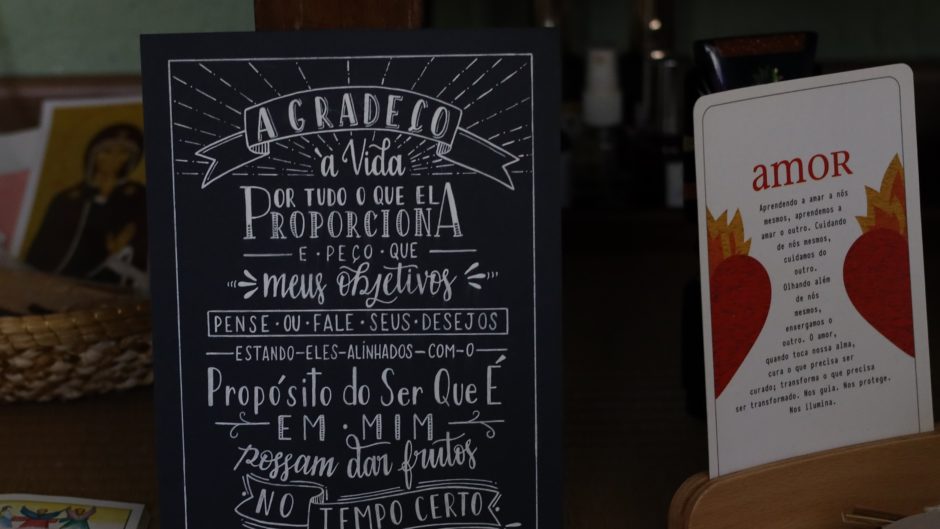 AGRADEÇO
à Vida
POR TUDO O QUE ELA
PROPORCIONA
E·PEÇO·QUE
meus objetivos
PENSE·OU·FALE·SEUS·DESEJOS
ESTANDO-ELES-ALINHADOS-COM-O
Propósito do Ser Que É
EM·MIM
possam dar frutos
NO
TEMPO CERTO
amor
Aprendendo a amar a nós
mesmos, aprendemos a
amar o outro. Cuidando
de nós mesmos,
cuidamos do
outro.
Olhando além
de nós
mesmos,
enxergamos o
outro. O amor,
quando toca nossa alma,
cura o que precisa ser
curado; transforma o que precisa
ser transformado. Nos guia. Nos protege.
Nos ilumina.